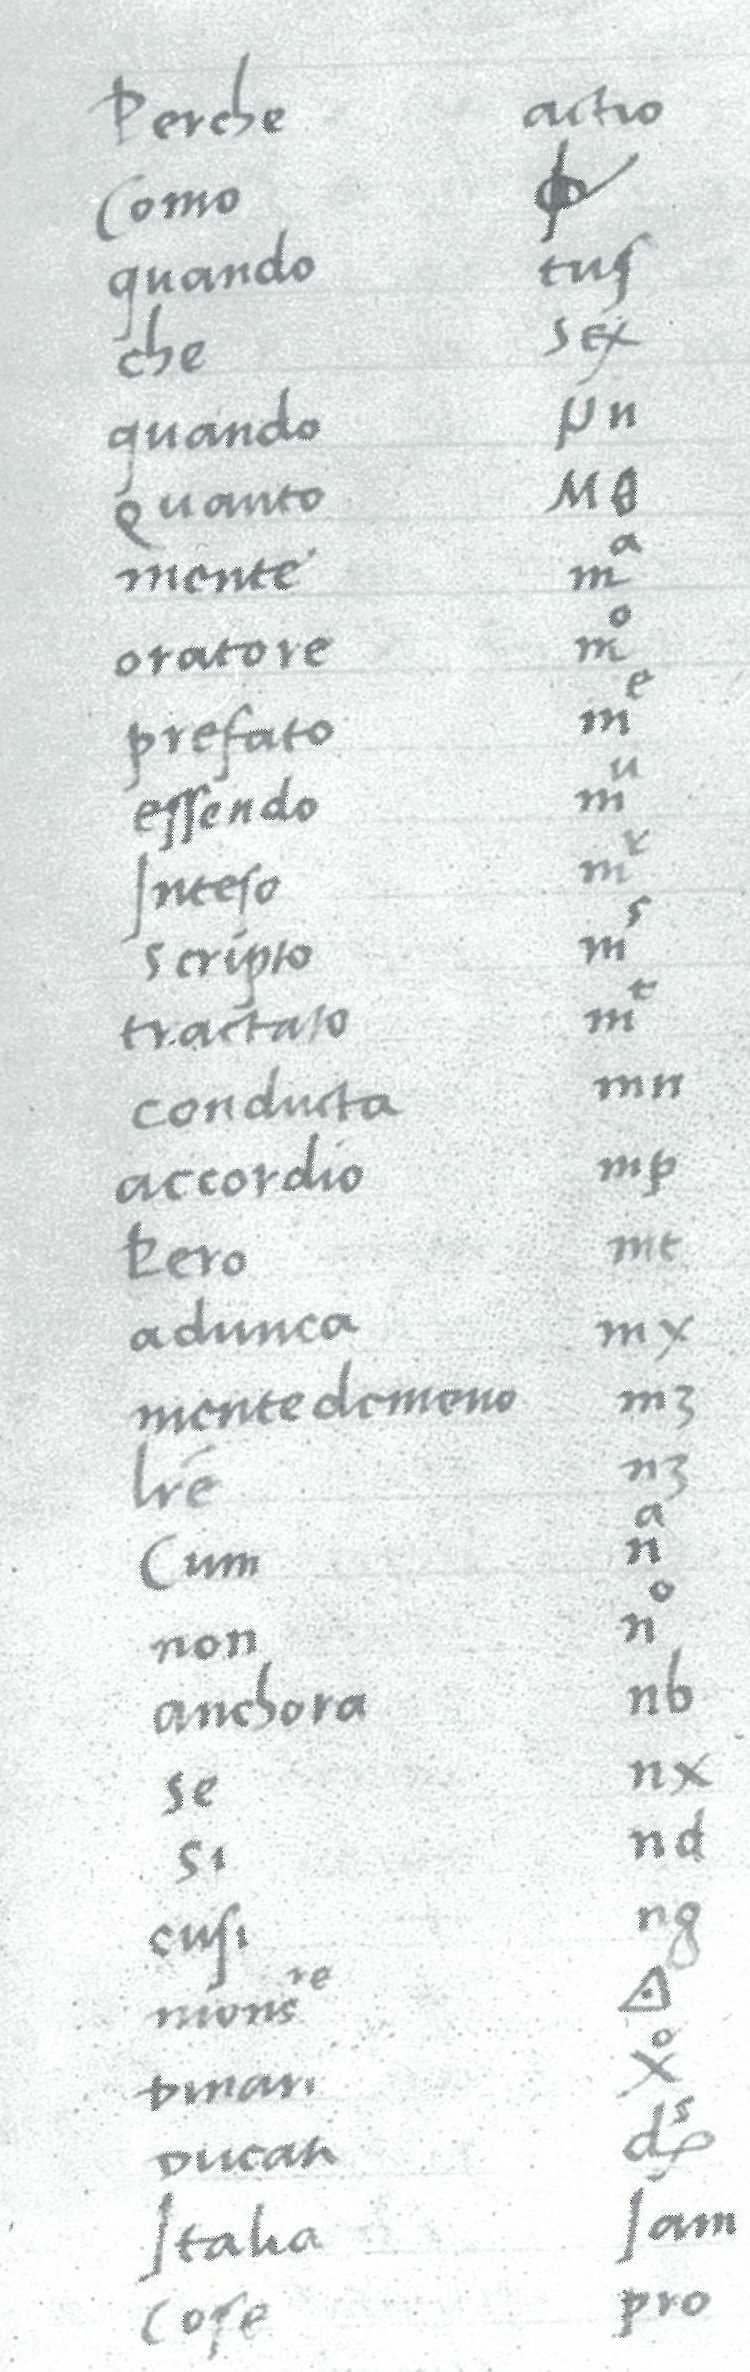 Perche actio
Como ϕ
quando tuſ
che sex
quando μn
Quanto Mθ
mente mᵃ
oratore mᵒ
prefato mᵉ
eſſendo mᵘ
Inteſo
scripto mˢ
tractato mᵗ
conducta mn
accordio mp
Pero mt
adunca mx
mente demeno mʒ
lre nʒ
Cum nᵃ
non nᵒ
anchora nb
se nx
si nd
cuſi ng
monsʳᵉ ◬
Dinari xᵒ
Ducati
Italia Iam
Coſe pro